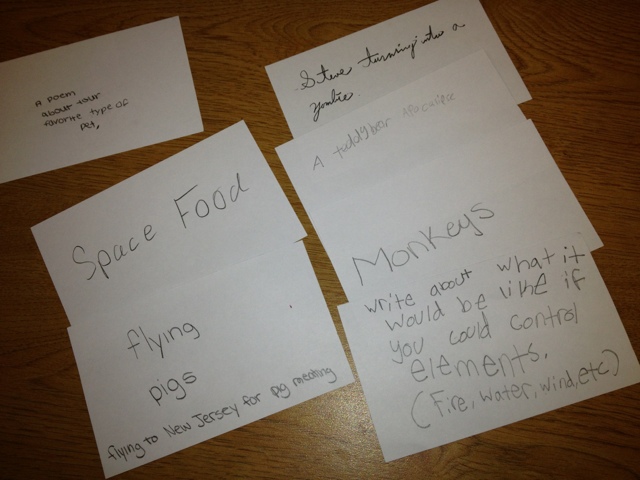 A poem
about your
favorite type of
pet,
Space Food
flying
pigs
flying to New Jersey for pig meeting
Steve turning into a
zombie.
A teddy bear apocalipce
Monkeys
write about what it
would be like if
you could control
elements.
(Fire, water, wind, etc)